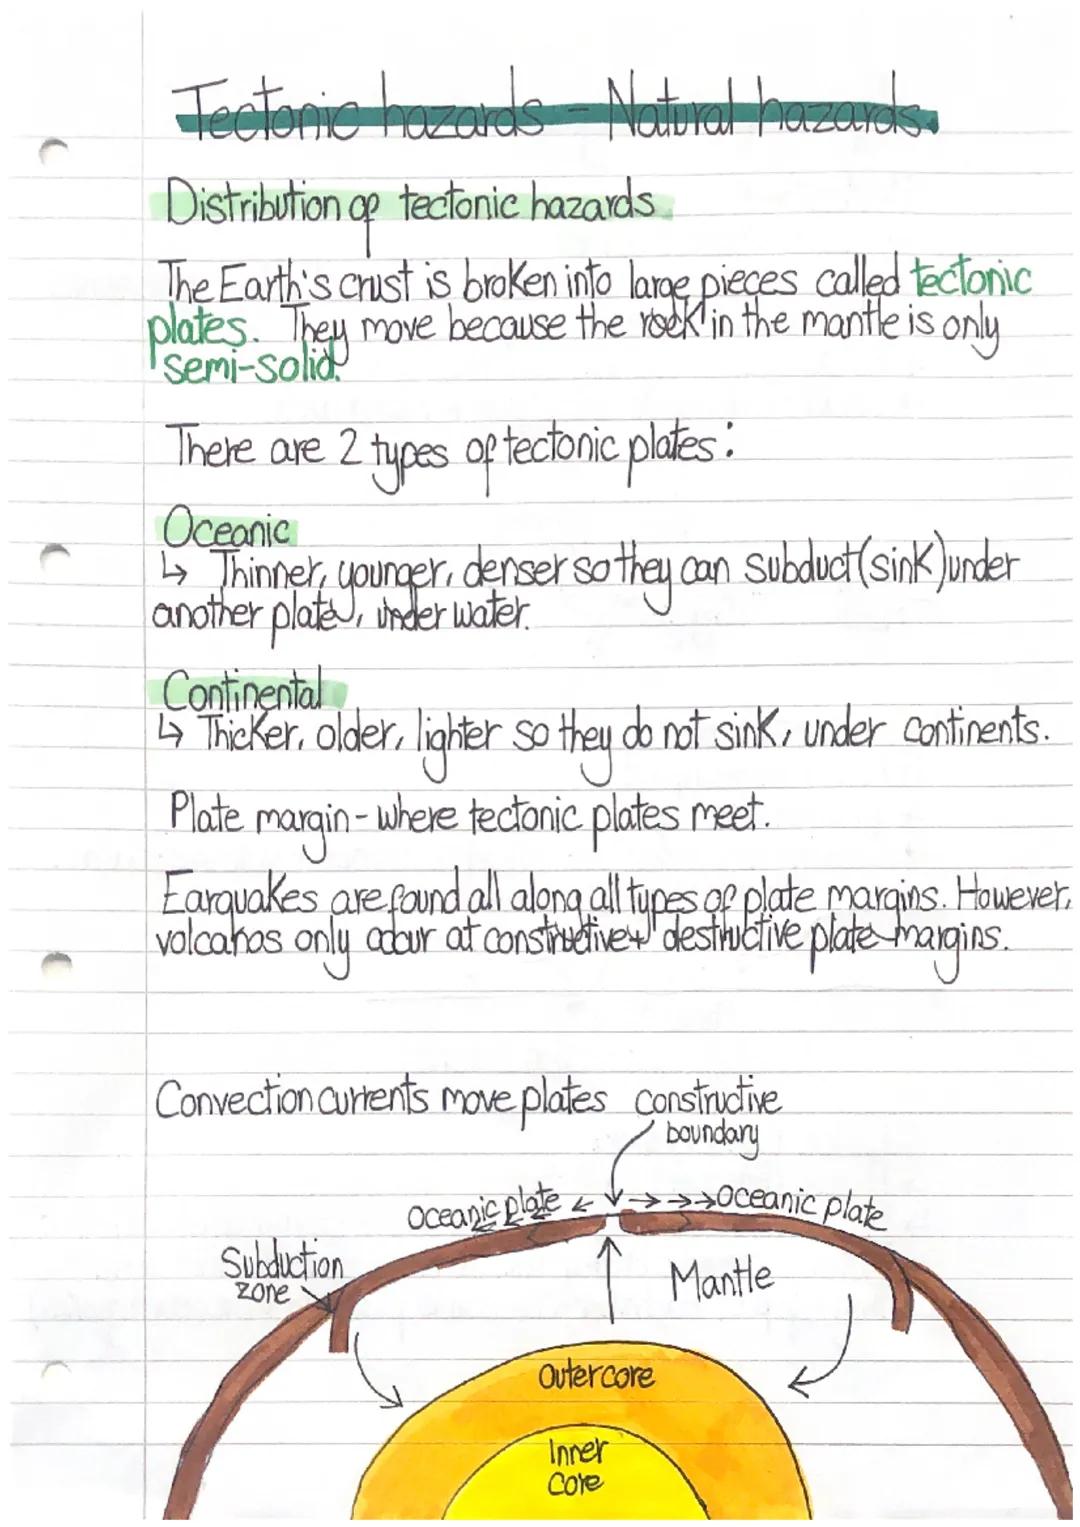 Tectonic hazards - Natural hazards.
Distribution of tectonic hazards
The Earth's crust is broken into large pieces called tectonic
plates. They move because the rock in the mantle is only
semi-solid.
There are 2 types of tectonic plates:
Oceanic
↳ Thinner, younger, denser so they can subduct (sink) under
another plate, under water.
Continental
↳ Thicker, older, lighter so they do not sink, under continents.
Plate margin - where tectonic plates meet.
Earquakes are found all along all types of plate margins. However,
volcanos only occur at constructive + destructive plate margins.
Convection currents move plates
constructive
boundary
Oceanic plate
Oceanic plate
Subduction
zone
Mantle
Outer core
Inner
Core